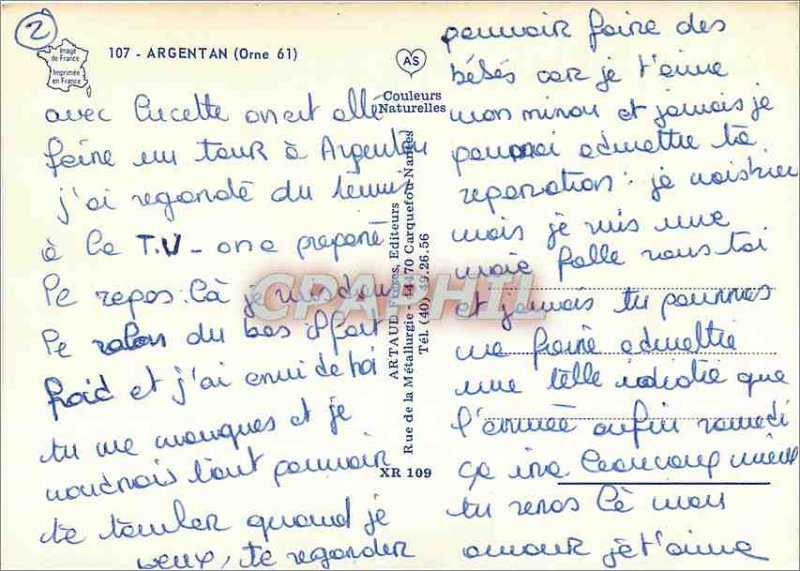 2
Image
de France
Imprimée
en France
107 - ARGENTAN (Orne 61)
AS
Couleurs
Naturelles
avec Lucette on est allé
faire un tour à Argentan
j'ai regardé du tennis
à la T.V - on a préparé
le repas. Là je suis dans
le salon du bas il fait
froid et j'ai envi de toi
tu me manques et je
voudrais tant pouvoir
te quand je
veux, te regarder
ARTAUD Frères, Editeurs
Rue de la Métallurgie - 44470 Carquefou-Nantes
Tél. (40) 49.26.56
XR 109
CPAPHIL
pouvoir faire des
bébés car je t'aime
mon minou et jamais je
pourrai admettre ta
reparation: je
mais je suis une
vraie folle sans toi
et jamais tu pourras
me faire admettre
une telle idiotie que
l'armée enfin samedi
ça ira beaucoup mieux
tu seras là mon
amour je t'aime